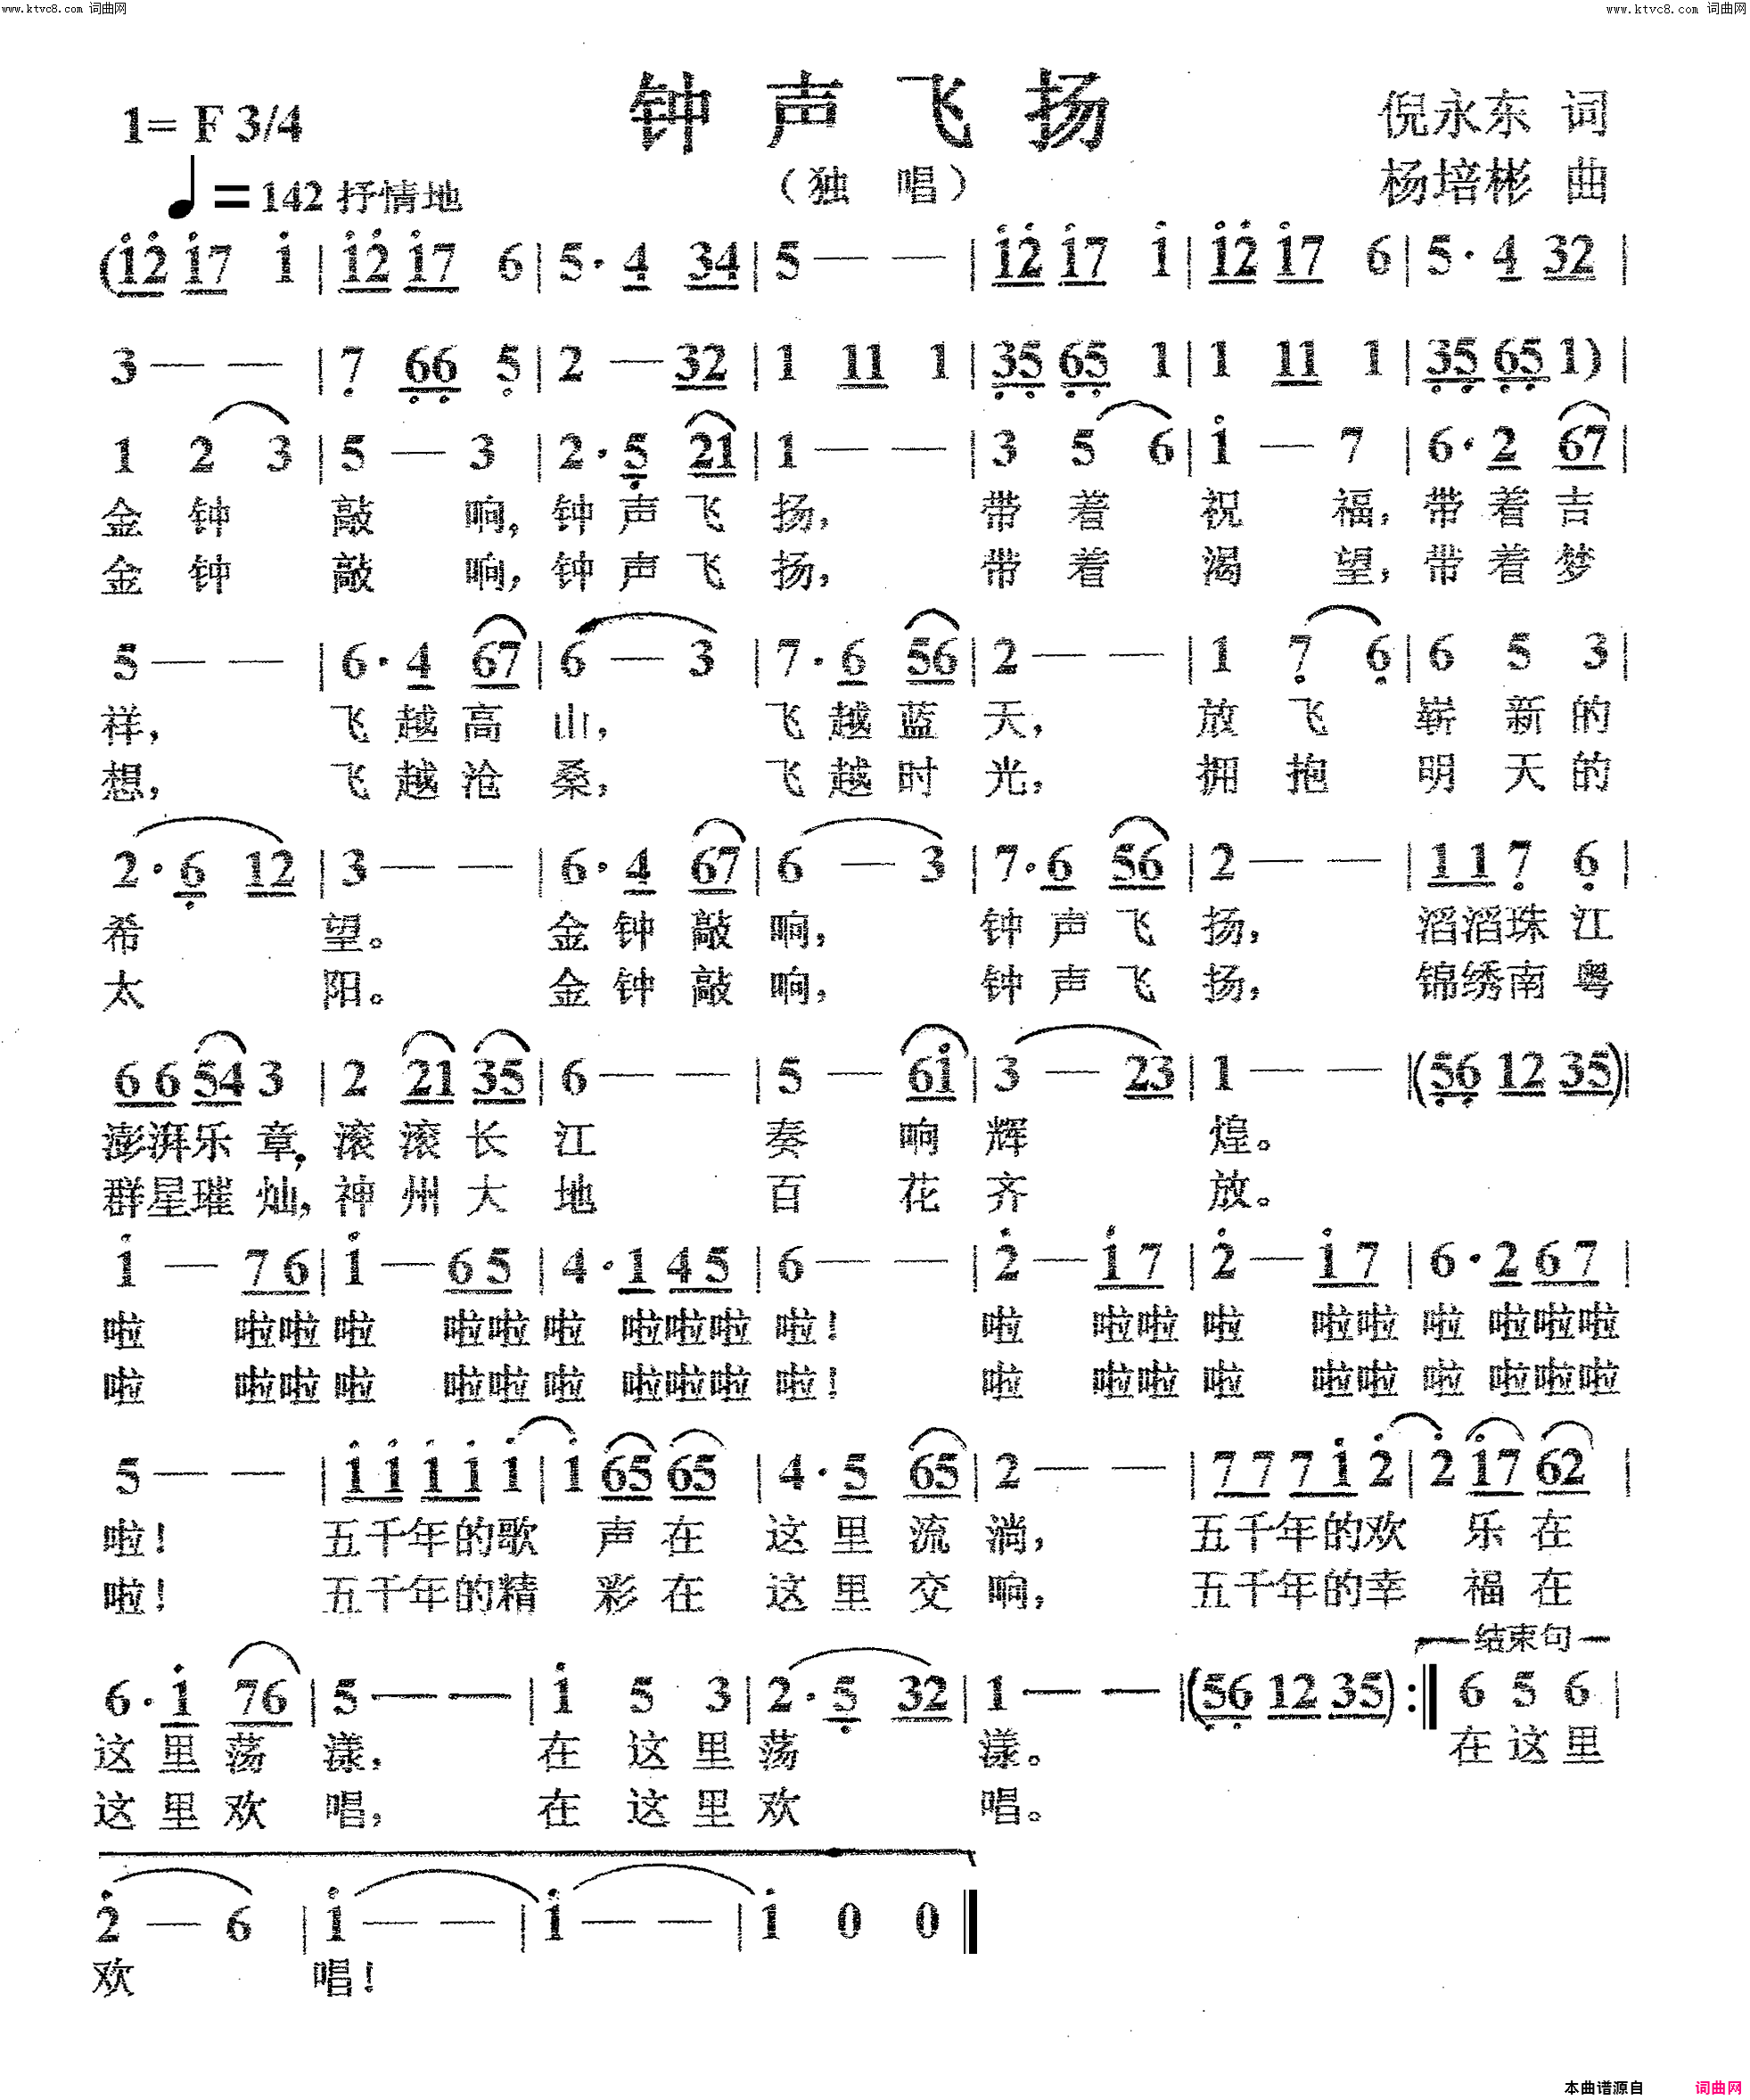 www.ktvc8.com 词曲网
www.ktvc8.com 词曲网
钟声飞扬
1= F 3/4
倪永东 词
(独 唱)
杨培彬 曲
♩= 142 抒情地
(i̇2̇ i̇7 i̇ | i̇2̇ i̇7 6 | 5· 4 34 | 5 — — | i̇2̇ i̇7 i̇ | i̇2̇ i̇7 6 | 5· 4 32 |
3 — — | 7̣ 6̣6̣ 5̣ | 2 — 32 | 1 11 1 | 3̣5̣ 6̣5̣ 1 | 1 11 1 | 3̣5̣ 6̣5̣ 1) |
1 2 3 | 5 — 3 | 2· 5̣ 21 | 1 — — | 3 5 6 | i̇ — 7 | 6· 2 67 |
金 钟 敲 响, 钟 声 飞 扬, 带 着 祝 福, 带 着 吉
金 钟 敲 响, 钟 声 飞 扬, 带 着 渴 望, 带 着 梦
5 — — | 6· 4 67 | 6 — 3 | 7· 6 56 | 2 — — | 1 7̣ 6̣ | 6 5 3 |
祥, 飞 越 高 山, 飞 越 蓝 天, 放 飞 崭 新 的
想, 飞 越 沧 桑, 飞 越 时 光, 拥 抱 明 天 的
2· 6̣ 12 | 3 — — | 6· 4 67 | 6 — 3 | 7· 6 56 | 2 — — | 1 1 7̣ 6̣ |
希 望。 金 钟 敲 响, 钟 声 飞 扬, 滔滔珠 江
太 阳。 金 钟 敲 响, 钟 声 飞 扬, 锦绣南 粤
6 6 54 3 | 2 21 35 | 6 — — | 5 — 6i̇ | 3 — 23 | 1 — — | (5̣6̣ 12 35) |
澎湃乐 章, 滚 滚 长 江 奏 响 辉 煌。
群星璀 灿, 神 州 大 地 百 花 齐 放。
i̇ — 7 6 | i̇ — 6 5 | 4· 1 4 5 | 6 — — | 2̇ — i̇ 7 | 2̇ — i̇ 7 | 6· 2 6 7 |
啦 啦啦 啦 啦啦 啦 啦啦啦 啦! 啦 啦啦 啦 啦啦 啦 啦啦啦
啦 啦啦 啦 啦啦 啦 啦啦啦 啦! 啦 啦啦 啦 啦啦 啦 啦啦啦
5 — — | i̇ i̇ i̇ i̇ i̇ | i̇ 65 65 | 4· 5 65 | 2 — — | 7 7 7 i̇ 2̇ | 2̇ i̇7 62 |
啦! 五千年的歌 声 在 这 里 流 淌, 五千年的欢 乐 在
啦! 五千年的精 彩 在 这 里 交 响, 五千年的幸 福 在
结束句
6· i̇ 76 | 5 — — | i̇ 5 3 | 2· 5̣ 32 | 1 — — | (5̣6̣ 12 35) :‖ 6 5 6 |
这 里 荡 漾, 在 这 里 荡 漾。 在 这 里
这 里 欢 唱, 在 这 里 欢 唱。
2̇ — 6 | i̇ — — | i̇ — — | i̇ 0 0 ‖
欢 唱!
本曲谱源自 词曲网